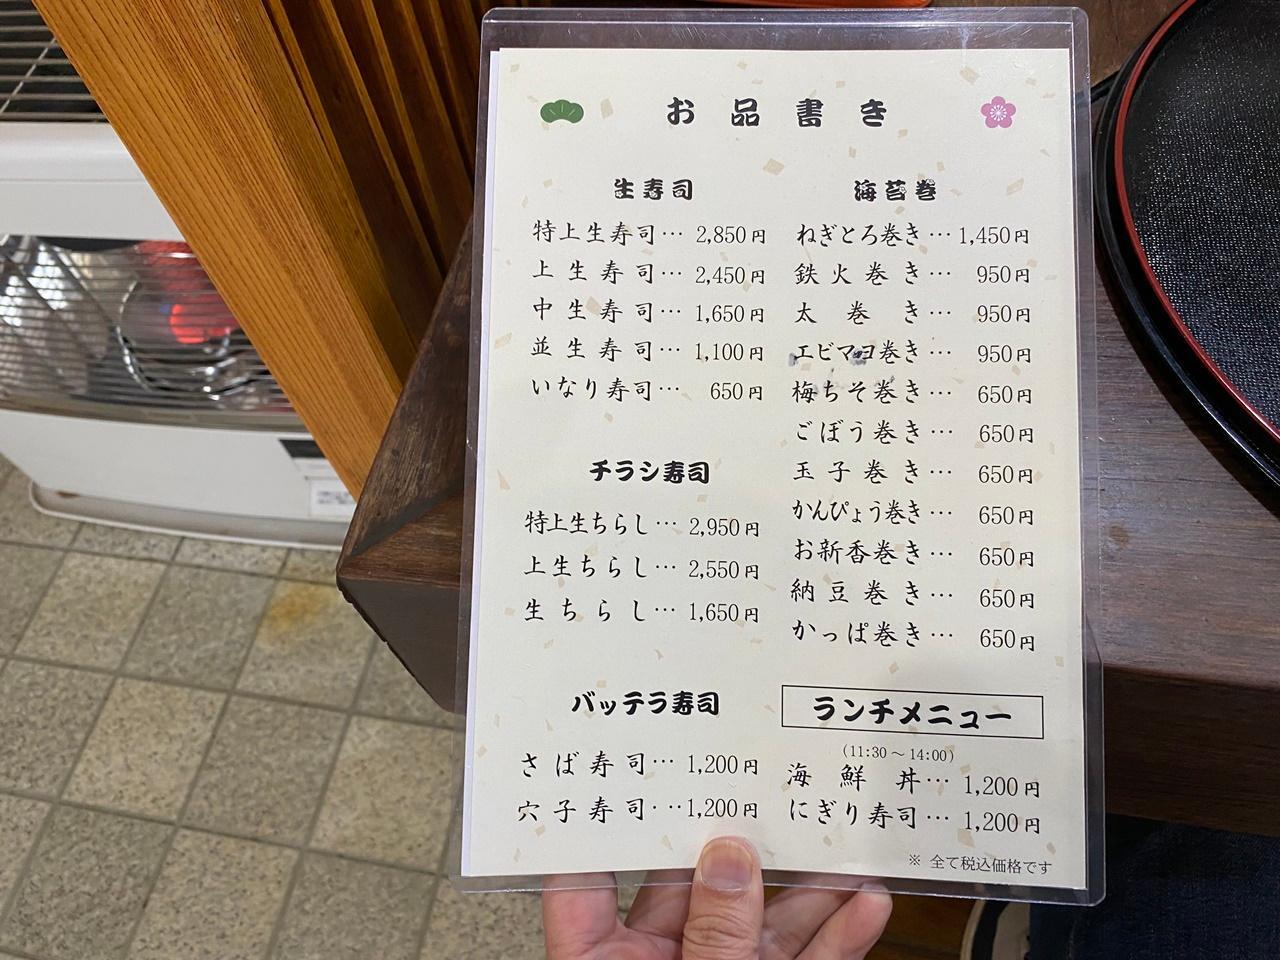 お品書き
生寿司
特上生寿司… 2,850円
上生寿司… 2,450円
中生寿司… 1,650円
並生寿司… 1,100円
いなり寿司… 650円
チラシ寿司
特上生ちらし… 2,950円
上生ちらし… 2,550円
生ちらし… 1,650円
バッテラ寿司
さば寿司… 1,200円
穴子寿司… 1,200円
海苔巻
ねぎとろ巻き… 1,450円
鉄火巻き… 950円
太巻き… 950円
エビマヨ巻き… 950円
梅ちそ巻き… 650円
ごぼう巻き… 650円
玉子巻き… 650円
かんぴょう巻き… 650円
お新香巻き… 650円
納豆巻き… 650円
かっぱ巻き… 650円
ランチメニュー
(11:30～14:00)
海鮮丼… 1,200円
にぎり寿司… 1,200円
※ 全て税込価格です